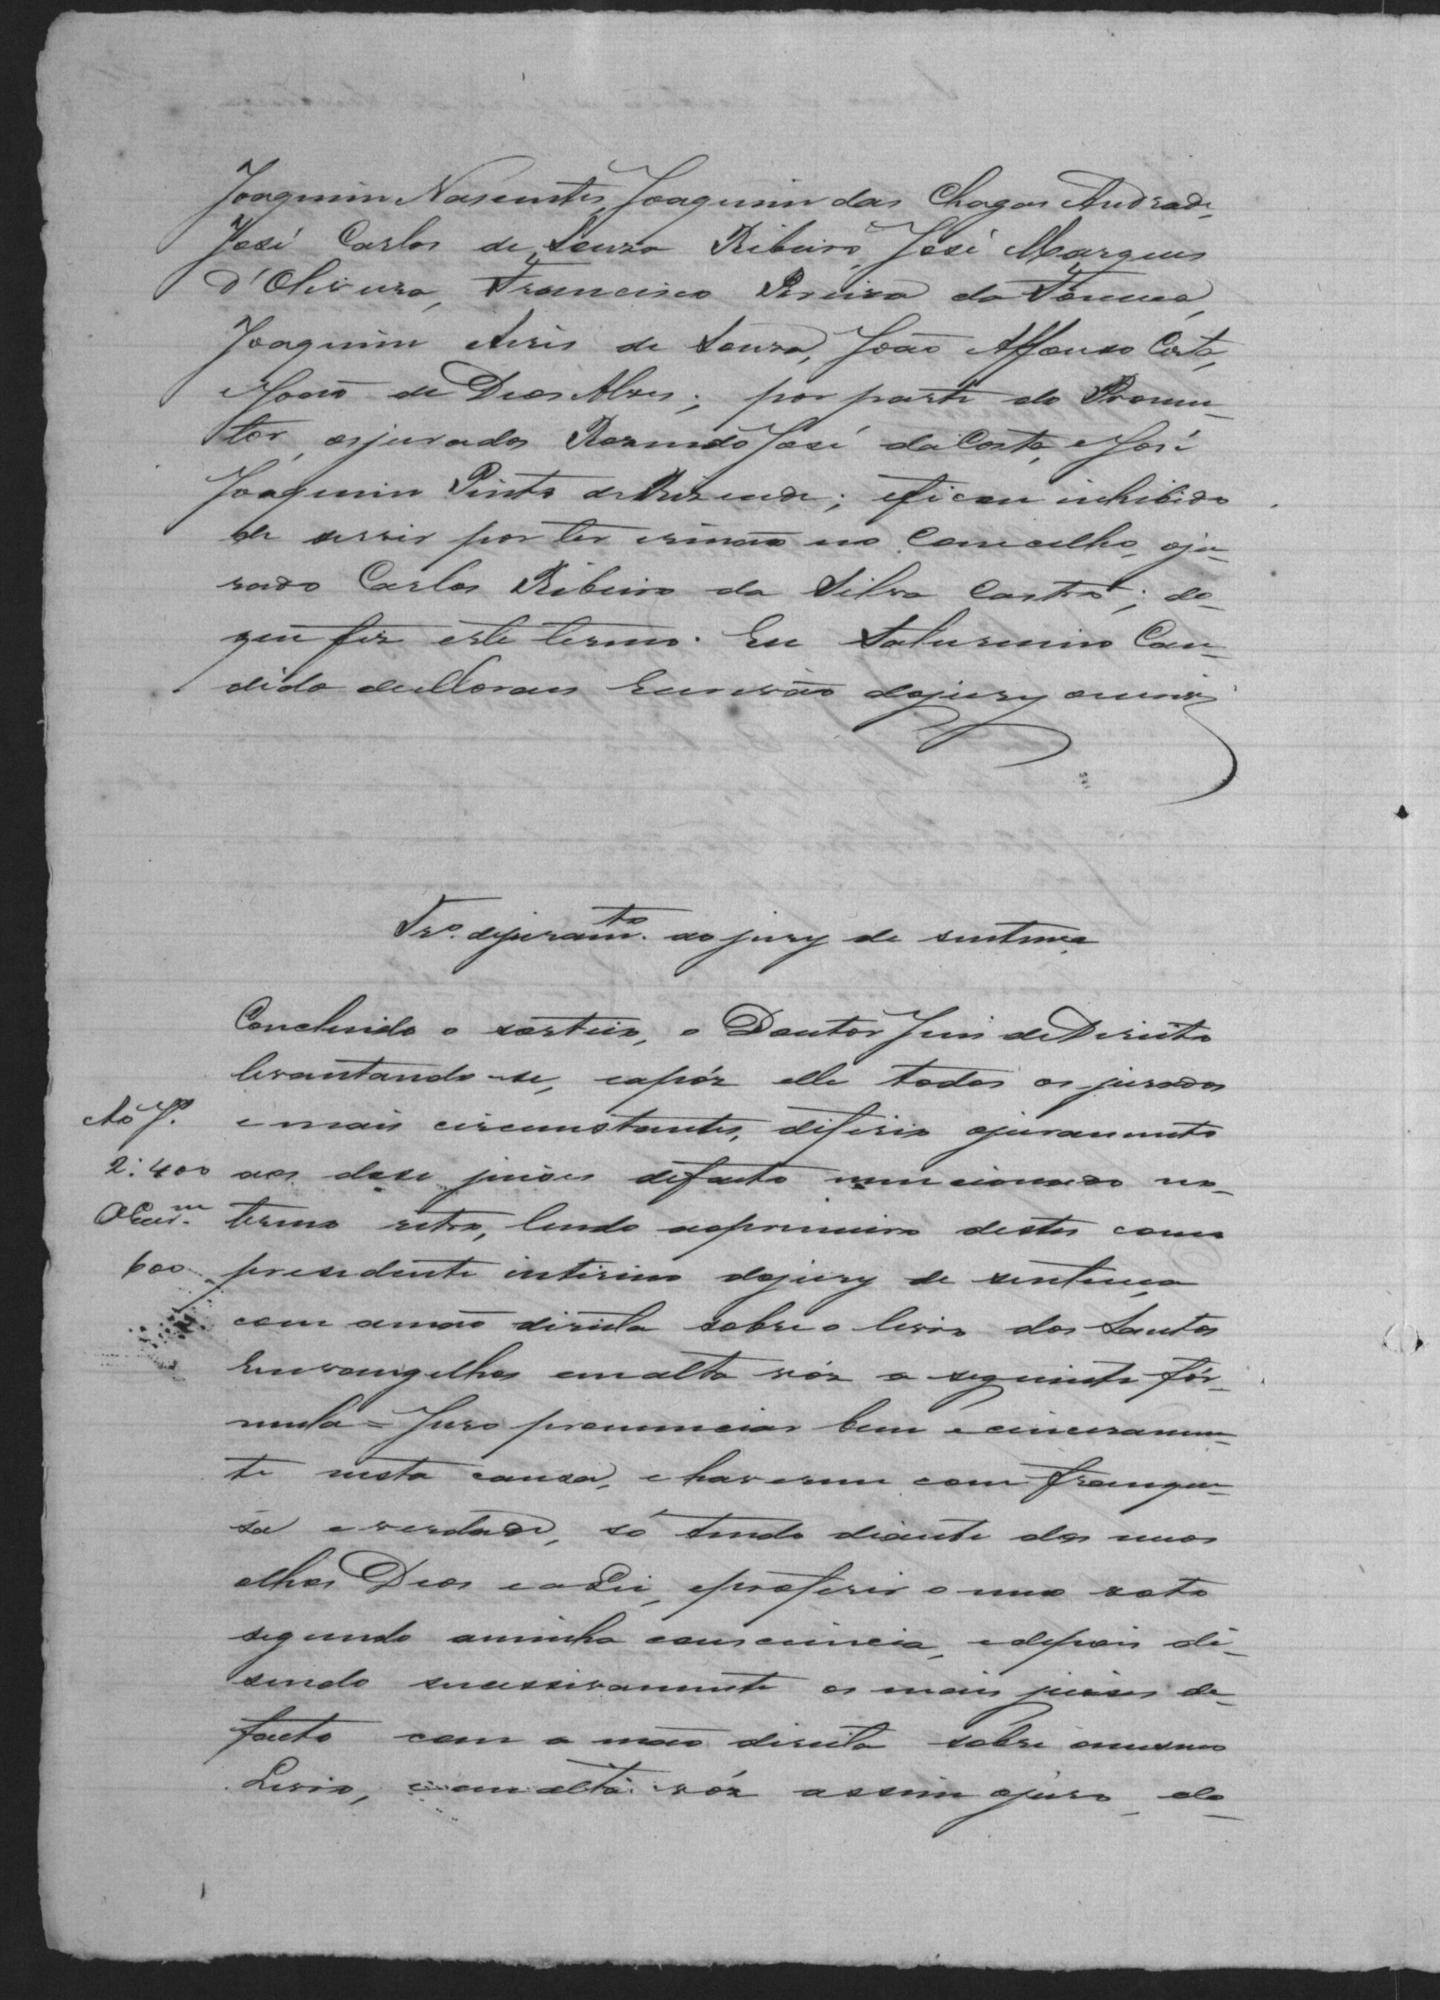 Joaquim Nascentes, Joaquim das Chagas Andrade,
José Carlos de Souza Ribeiro, José Marques
d'Oliveira, Francisco Pereira da
Joaquim Aires de Souza, João Affonso Costa,
e João de Deos Alves; por parte do Promu-
tor, os jurados José da Costa, e José
Joaquim Pinto de Rezende; e ficou inhibido
de servir por ter irmão no Concelho, o ju-
rado Carlos Ribeiro da Silva Castro; do
que fiz este termo. Eu Saturnino Can-
dido de Moraes Escrivão do jury escrevi
Tr.º de juram.to do jury de sentença
Concluido o sorteio, o Doutor Juis de Direito
levantando-se, e após elle todos os jurados
e mais circunstantes, diferio o juramento
aos dose juises de facto mencionados no
termo retro, lendo o primeiro destes como
presidente interino do jury de sentença
com a mão direita sobre o livro dos Santos
Evangelhos em alta vóz a seguinte fór-
mula = Juro pronunciar bem e cinceramen-
te nesta causa, e haverme com franque-
sa e verdade, só tendo diante dos meus
olhos Deos e a Lei, e proferir o meu voto
segundo a minha consciencia, e depois di-
sendo sucessivamente os mais juises de
facto com a mão direita sobre o mesmo
Livro, e em alta vóz assim o juro, do
Ao J.
2:400
O Escr.m
600